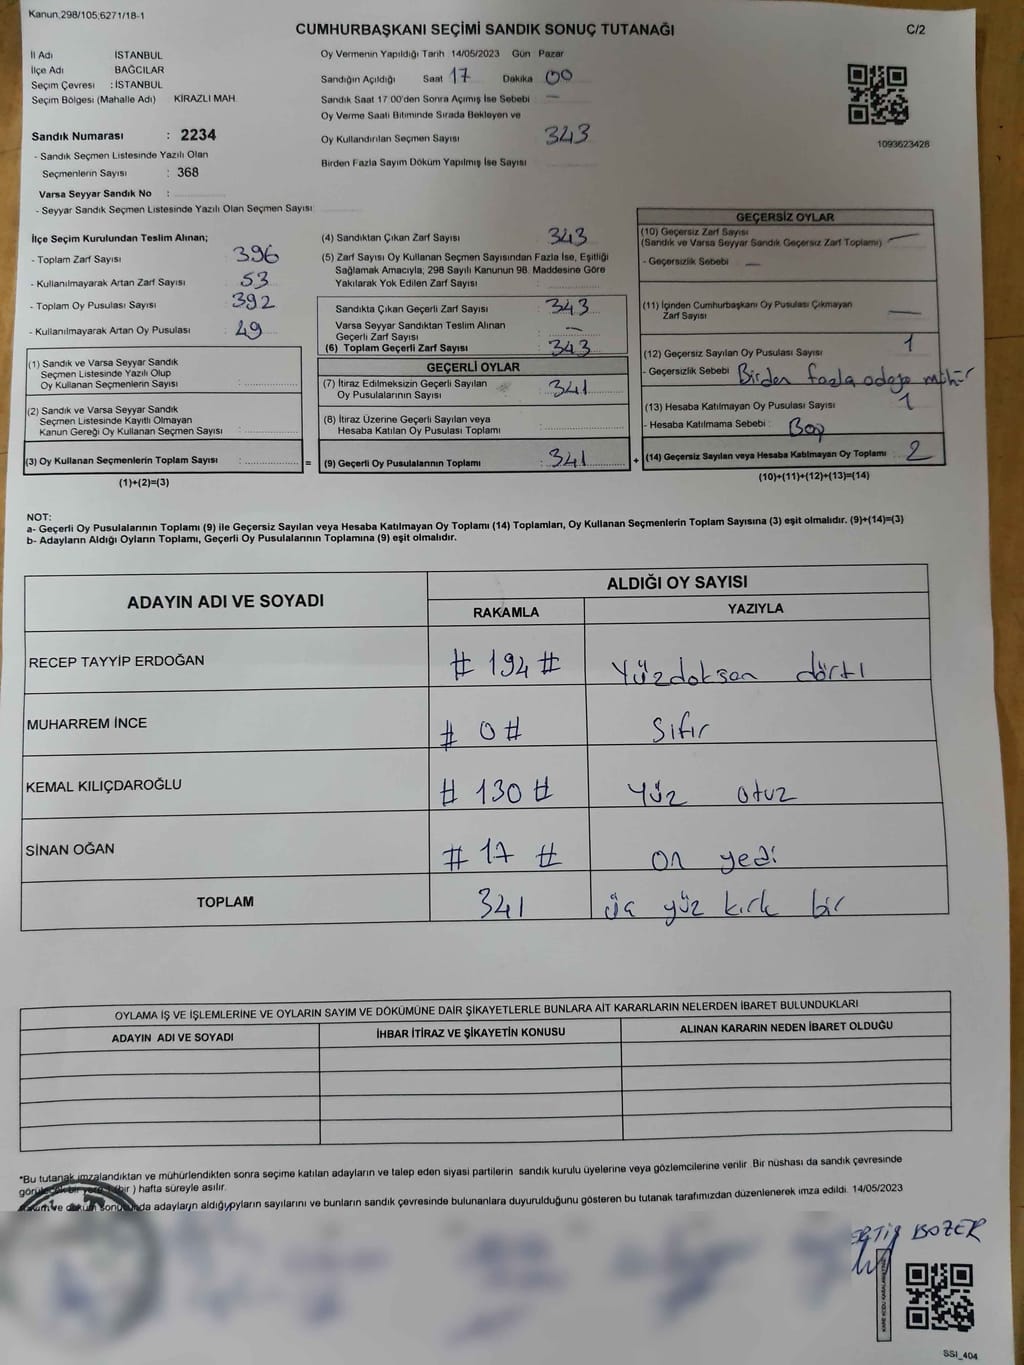 Kanun,298/105;6271/18-1
CUMHURBAŞKANI SEÇİMİ SANDIK SONUÇ TUTANAĞI
C/2
İl Adı İSTANBUL
İlçe Adı BAĞCILAR
Seçim Çevresi : İSTANBUL
Seçim Bölgesi (Mahalle Adı) KİRAZLI MAH.
Sandık Numarası : 2234
- Sandık Seçmen Listesinde Yazılı Olan
Seçmenlerin Sayısı : 368
Varsa Seyyar Sandık No :
- Seyyar Sandık Seçmen Listesinde Yazılı Olan Seçmen Sayısı:
Oy Vermenin Yapıldığı Tarih 14/05/2023 Gün Pazar
Sandığın Açıldığı Saat 17 Dakika 00
Sandık Saat 17:00'den Sonra Açımış İse Sebebi —
Oy Verme Saati Bitiminde Sırada Bekleyen ve
Oy Kullandırılan Seçmen Sayısı 343
Birden Fazla Sayım Döküm Yapılmış İse Sayısı
1093623428
İlçe Seçim Kurulundan Teslim Alınan;
- Toplam Zarf Sayısı 396
- Kullanılmayarak Artan Zarf Sayısı : 53
- Toplam Oy Pusulası Sayısı : 392
- Kullanılmayarak Artan Oy Pusulası : 49
(1) Sandık ve Varsa Seyyar Sandık
Seçmen Listesinde Yazılı Olup
Oy Kullanan Seçmenlerin Sayısı :
(2) Sandık ve Varsa Seyyar Sandık
Seçmen Listesinde Kayıtlı Olmayan
Kanun Gereği Oy Kullanan Seçmen Sayısı :
(3) Oy Kullanan Seçmenlerin Toplam Sayısı : =
(1)+(2)=(3)
(4) Sandıktan Çıkan Zarf Sayısı 343
(5) Zarf Sayısı Oy Kullanan Seçmen Sayısından Fazla İse, Eşitliği
Sağlamak Amacıyla, 298 Sayılı Kanunun 98. Maddesine Göre
Yakılarak Yok Edilen Zarf Sayısı :
Sandıkta Çıkan Geçerli Zarf Sayısı : 343
Varsa Seyyar Sandıktan Teslim Alınan
Geçerli Zarf Sayısı : —
(6) Toplam Geçerli Zarf Sayısı : 343
GEÇERLİ OYLAR
(7) İtiraz Edilmeksizin Geçerli Sayılan
Oy Pusulalarının Sayısı : 341
(8) İtiraz Üzerine Geçerli Sayılan veya
Hesaba Katılan Oy Pusulası Toplamı :
(9) Geçerli Oy Pusulalarının Toplamı : 341 +
GEÇERSİZ OYLAR
(10) Geçersiz Zarf Sayısı
(Sandık ve Varsa Seyyar Sandık Geçersiz Zarf Toplamı) —
- Geçersizlik Sebebi —
(11) İçinden Cumhurbaşkanı Oy Pusulası Çıkmayan
Zarf Sayısı —
(12) Geçersiz Sayılan Oy Pusulası Sayısı 1
- Geçersizlik Sebebi Birden fazla adaya mühür
(13) Hesaba Katılmayan Oy Pusulası Sayısı 1
- Hesaba Katılmama Sebebi : Boş
(14) Geçersiz Sayılan veya Hesaba Katılmayan Oy Toplamı 2
(10)+(11)+(12)+(13)=(14)
NOT:
a- Geçerli Oy Pusulalarının Toplamı (9) ile Geçersiz Sayılan veya Hesaba Katılmayan Oy Toplamı (14) Toplamları, Oy Kullanan Seçmenlerin Toplam Sayısına (3) eşit olmalıdır. (9)+(14)=(3)
b- Adayların Aldığı Oyların Toplamı, Geçerli Oy Pusulalarının Toplamına (9) eşit olmalıdır.
ADAYIN ADI VE SOYADI
ALDIĞI OY SAYISI
RAKAMLA YAZIYLA
RECEP TAYYİP ERDOĞAN # 194 # Yüzdoksan dört
MUHARREM İNCE # 0 # Sıfır
KEMAL KILIÇDAROĞLU # 130 # Yüz otuz
SİNAN OĞAN # 17 # on yedi
TOPLAM 341 üç yüz kırk bir
OYLAMA İŞ VE İŞLEMLERİNE VE OYLARIN SAYIM VE DÖKÜMÜNE DAİR ŞİKAYETLERLE BUNLARA AİT KARARLARIN NELERDEN İBARET BULUNDUKLARI
ADAYIN ADI VE SOYADI İHBAR İTİRAZ VE ŞİKAYETİN KONUSU ALINAN KARARIN NEDEN İBARET OLDUĞU
*Bu tutanak imzalandıktan ve mühürlendikten sonra seçime katılan adayların ve talep eden siyasi partilerin sandık kurulu üyelerine veya gözlemcilerine verilir. Bir nüshası da sandık çevresinde
görülecek bir yere 1 (bir ) hafta süreyle asılır.
ve döküm sonucunda adayların aldığı oyların sayılarını ve bunların sandık çevresinde bulunanlara duyurulduğunu gösteren bu tutanak tarafımızdan düzenlenerek imza edildi. 14/05/2023
BOZER
SSI_404